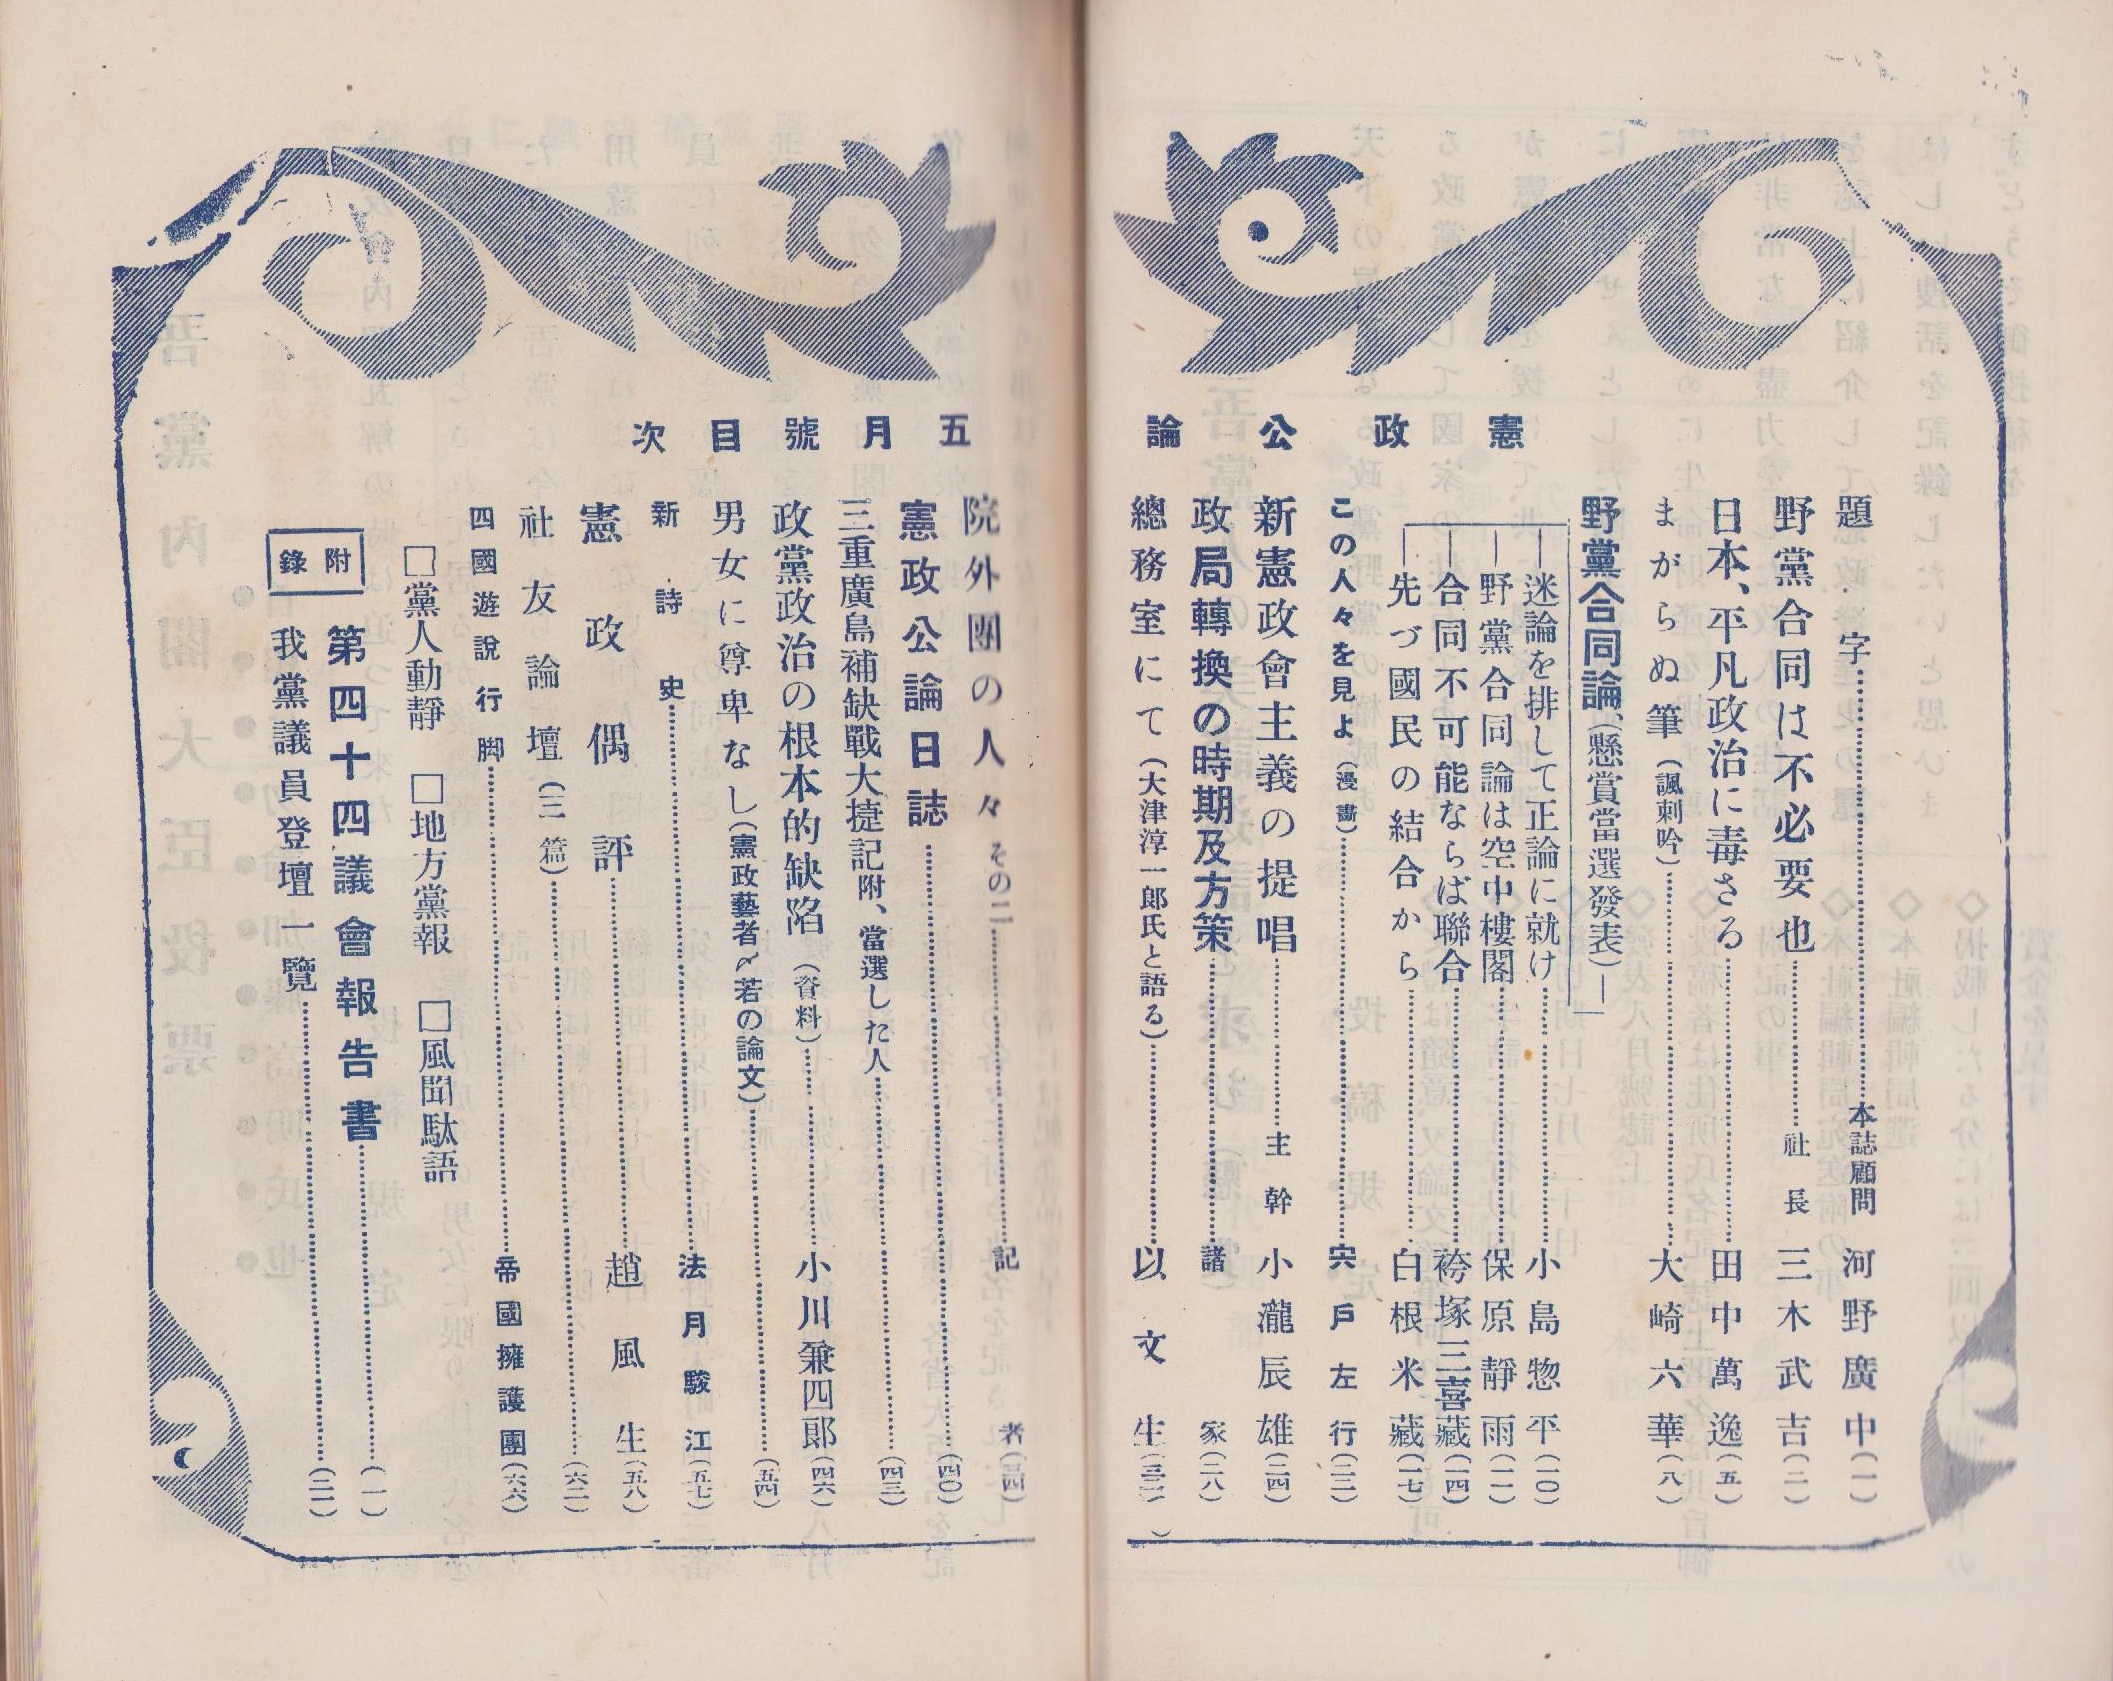 憲政公論
五月號目次
題字 本誌顧問 河野廣中(一)
野黨合同は不必要也 社長 三木武吉(二)
日本、平凡政治に毒さる 田中萬逸(五)
まがらぬ筆(諷刺吟) 大崎六華(八)
野黨合同論(懸賞當選發表)
迷論を排して正論に就け 小島惣平(一〇)
野黨合同論は空中樓閣 保原靜雨(一一)
合同不可能ならば聯合 袴塚三喜藏(一四)
先づ國民の結合から 白根米藏(一七)
この人々を見よ(漫畵) 宍戶左行(二二)
新憲政會主義の提唱 主幹 小瀧辰雄(二四)
政局轉換の時期及方策 諸家(二八)
總務室にて(大津淳一郎氏と語る) 以文生
院外團の人々 その二 記者(三四)
憲政公論日誌 (四〇)
三重廣島補缺戰大捷記 附、當選した人 (四三)
政黨政治の根本的缺陷(資料) 小川兼四郎(四六)
男女に尊卑なし(憲政藝者〆若の論文) (五四)
新詩史 法月駿江(五七)
憲政偶評 趙風生(五八)
社友論壇(三篇) (六二)
四國遊說行脚 帝國擁護團(六六)
□黨人動靜 □地方黨報 □風聞駄語
附錄
第四十四議會報告書 (一)
我黨議員登壇一覽 (二二)